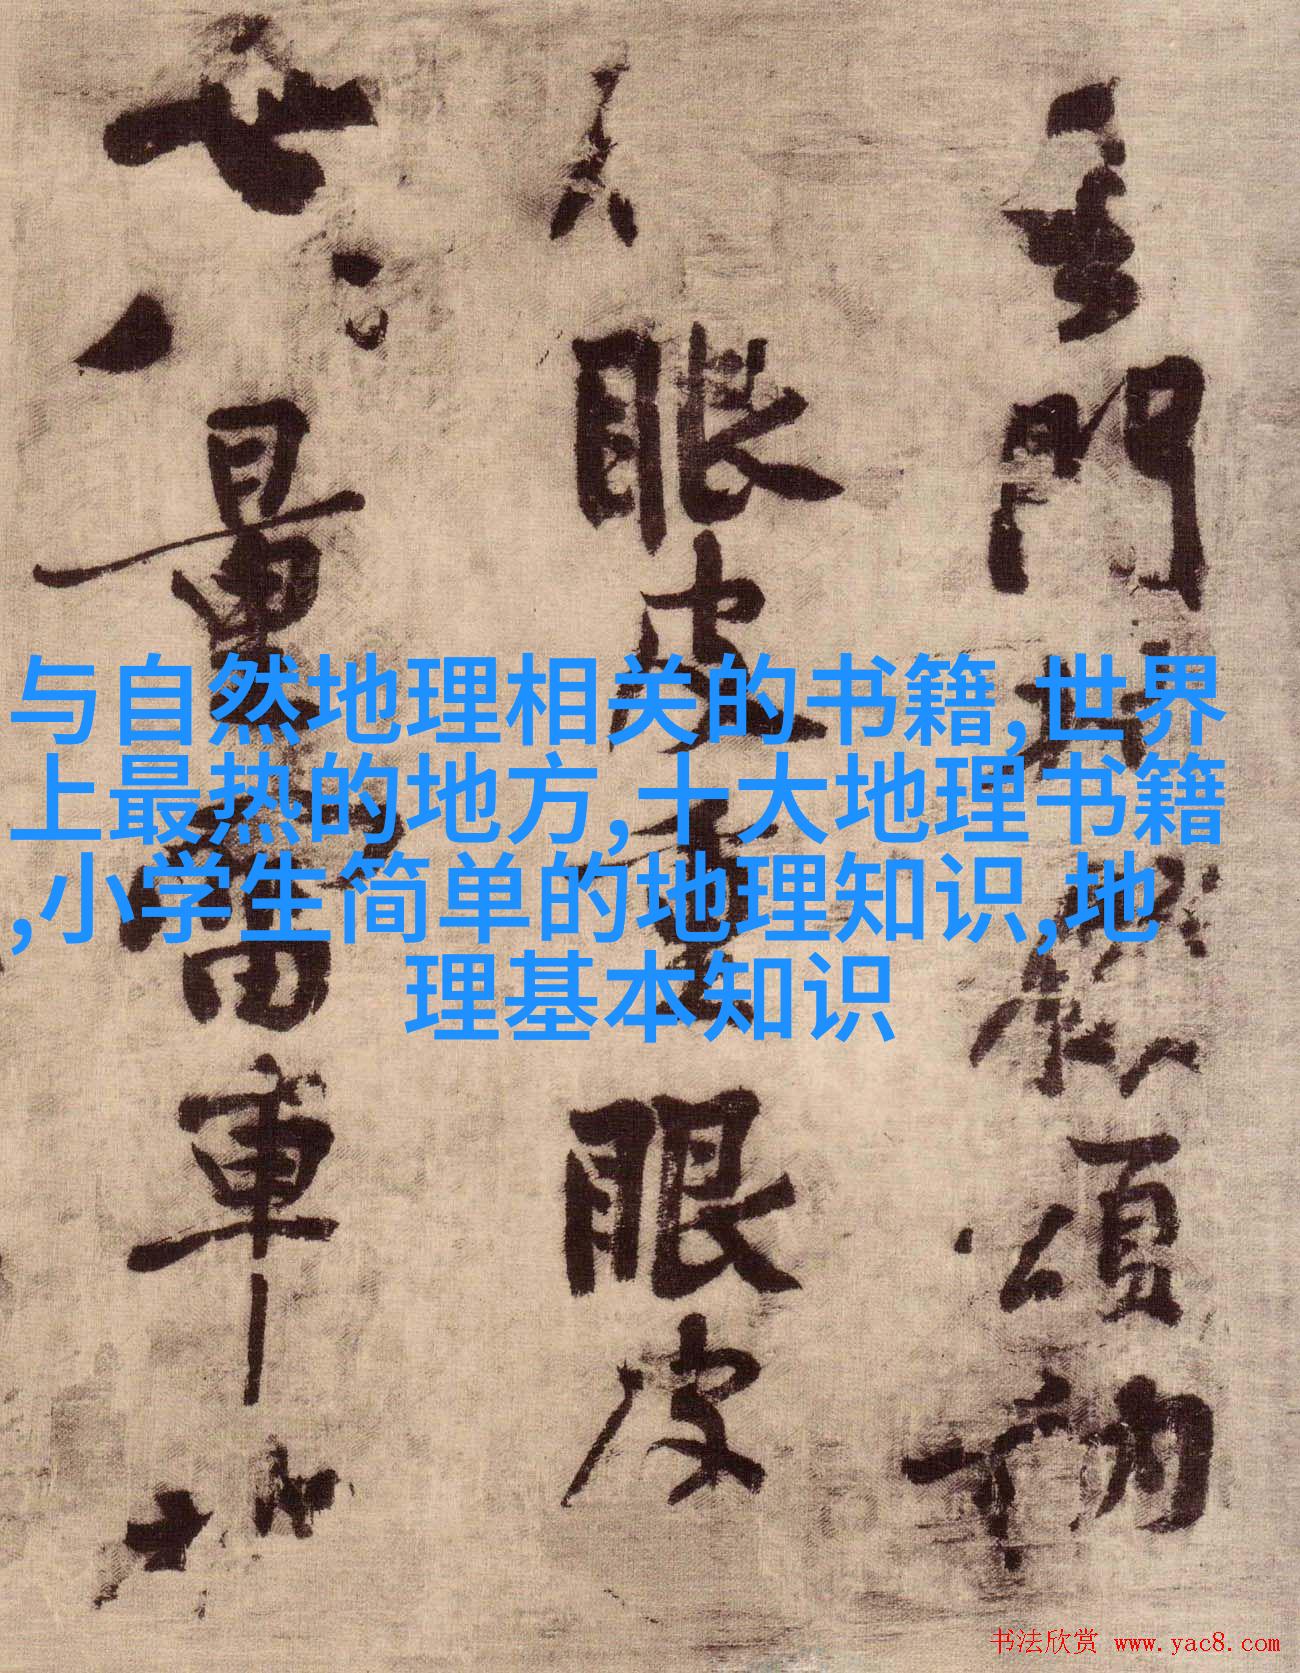 与自然地理相关的书籍,世界
上最热的地方,十大地理书籍
,小学生简单的地理知识,地
理基本知识
門
頌訥
眼皮重眼皮
世八
量
軍
书法欣赏 www.yac8.com